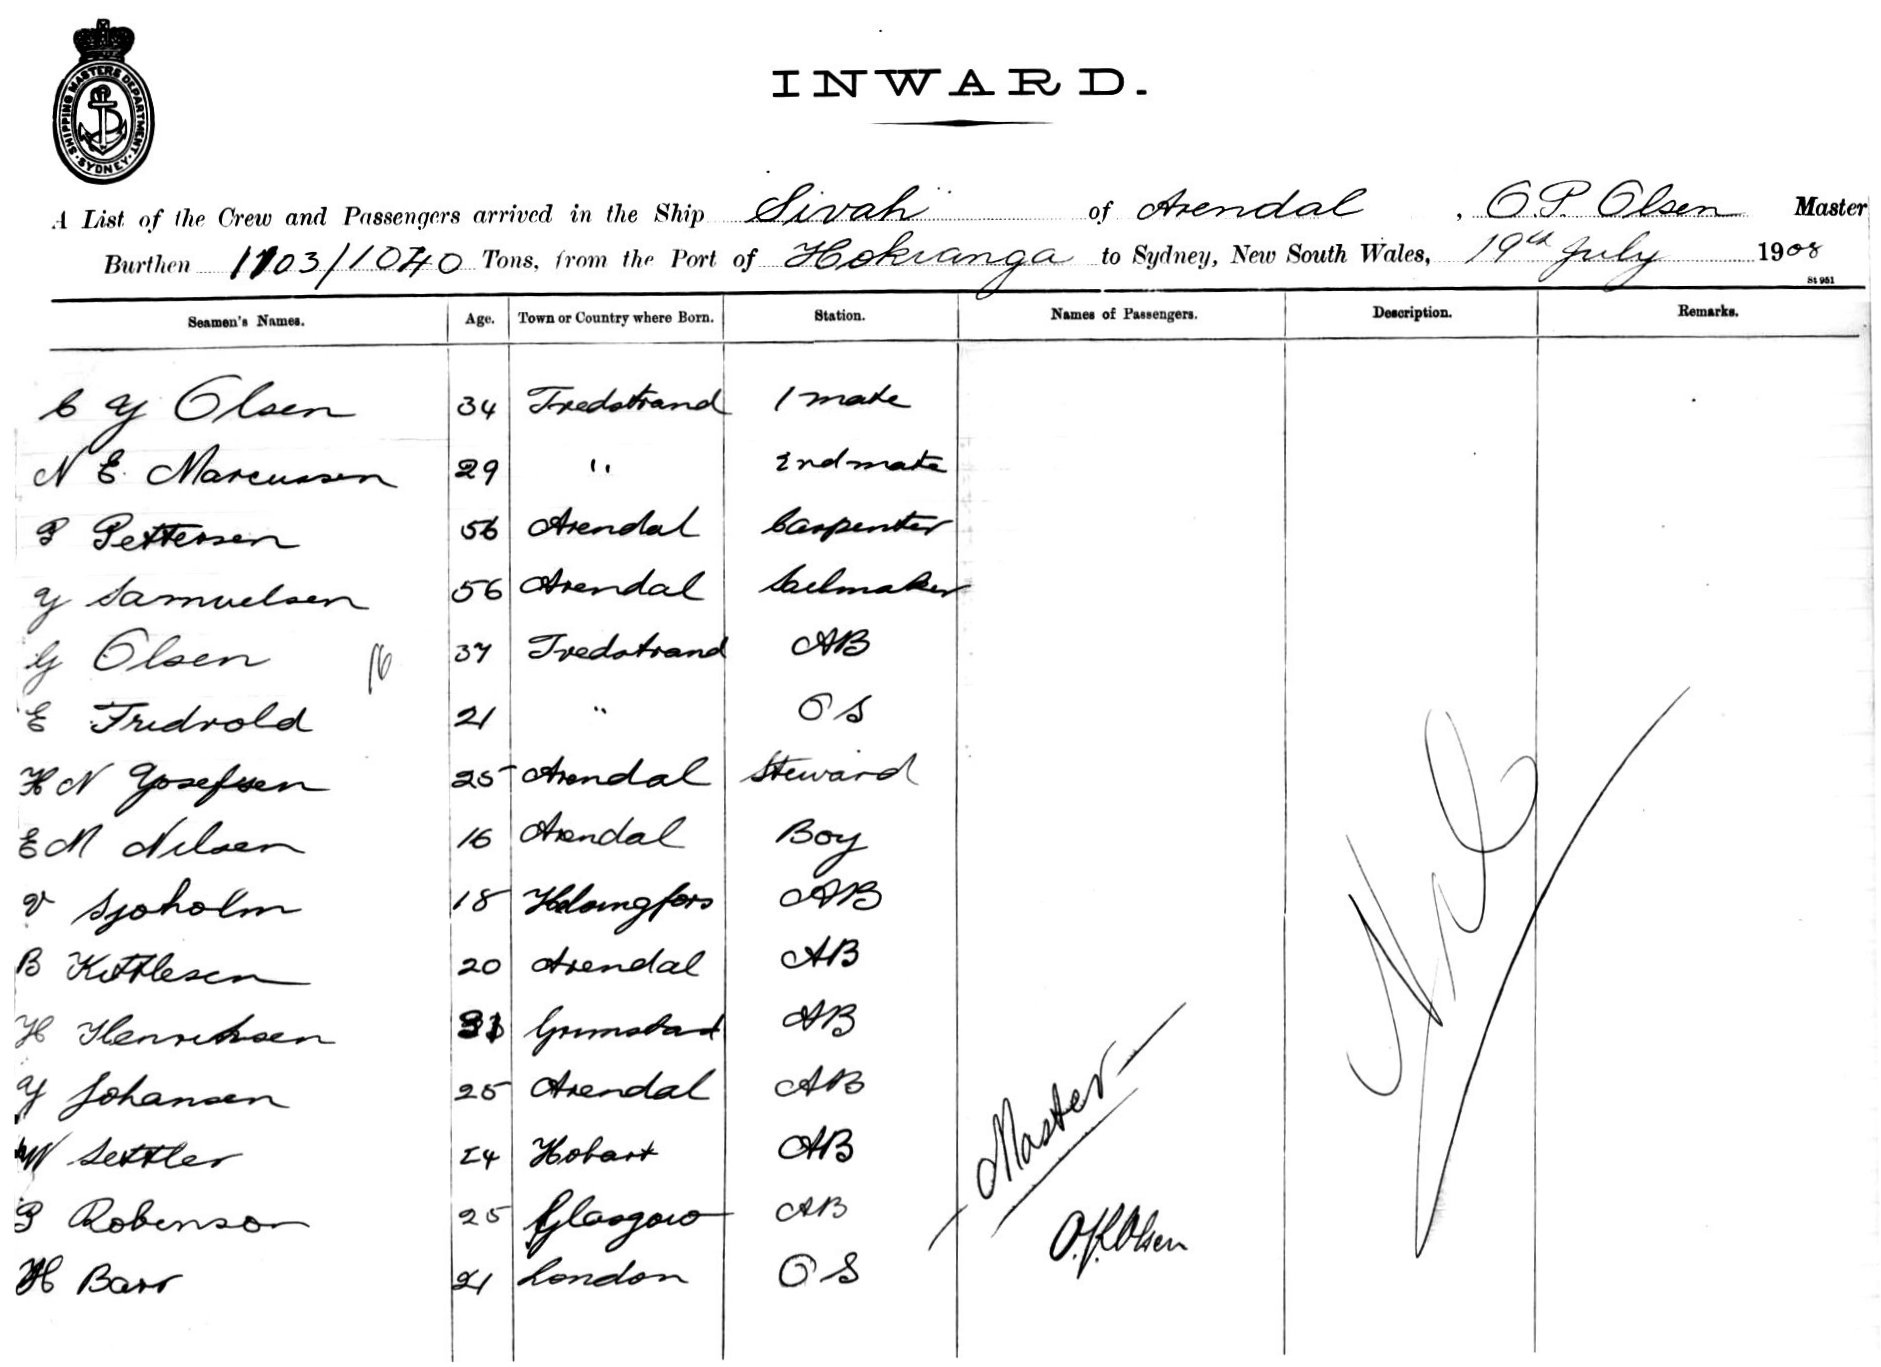 SHIPPING MASTERS DEPARTMENT · SYDNEY ·
INWARD.
A List of the Crew and Passengers arrived in the Ship Sivah of Arendal, O P. Olsen Master
Burthen 1103/1040 Tons, from the Port of Hokianga to Sydney, New South Wales, 19th July 1908
St 951
Seamen's Names. Age. Town or Country where Born. Station. Names of Passengers. Description. Remarks.
C Y Olsen 34 Tredstrand 1 mate
N E. Marcussen 29 " 2nd mate
P Pettersen 56 Arendal Carpenter
Y Samuelsen 56 Arendal Sailmaker
G Olsen 16 37 Tvedstrand AB
E Fridvold 21 " O S
H N Yosefsen 25 Arendal Steward
E M Nilsen 16 Arendal Boy
V Sjoholm 18 Helsingfors AB
B Kittlesen 20 Arendal AB
H Henriksen Grimstad AB
Y Johansen 25 Arendal AB
W Settler 24 Hobart AB
P Robinson 25 Glasgow AB
H Barr 21 London O S
Nil
Master
O.P. Olsen